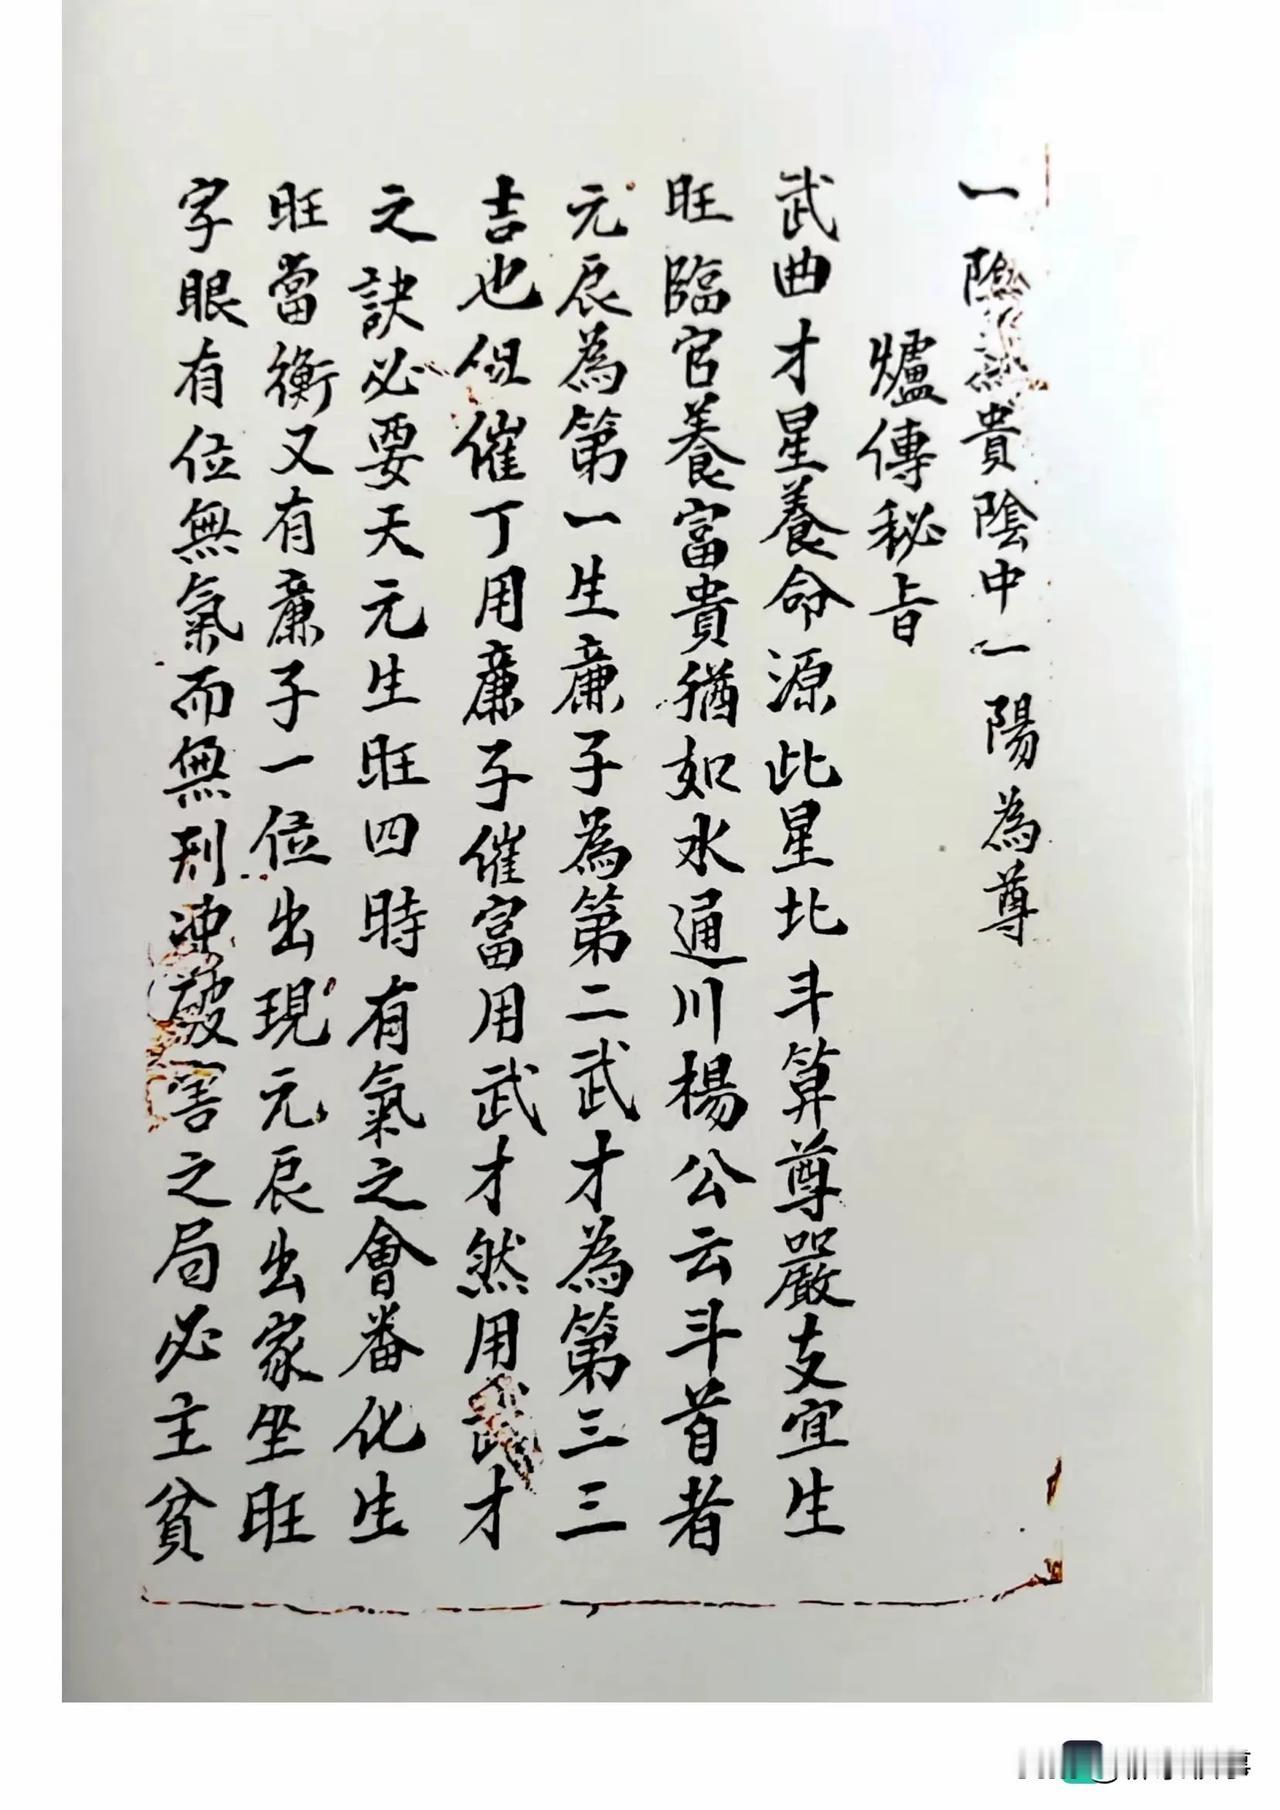 一陰無貴陰中一陽為尊
爐傳秘旨
武曲才星養命源此星北斗算尊嚴支宜生
旺臨官養富貴猶如水通川楊公云斗首者
元辰為第一生廉子為第二武才為第三三
吉也但催丁用廉子催富用武才然用武才
之訣必要天元生旺四時有氣之會番化生
旺當衡又有廉子一位出現元辰出家坐旺
字眼有位無氣而無刑沖破害之局必主貧